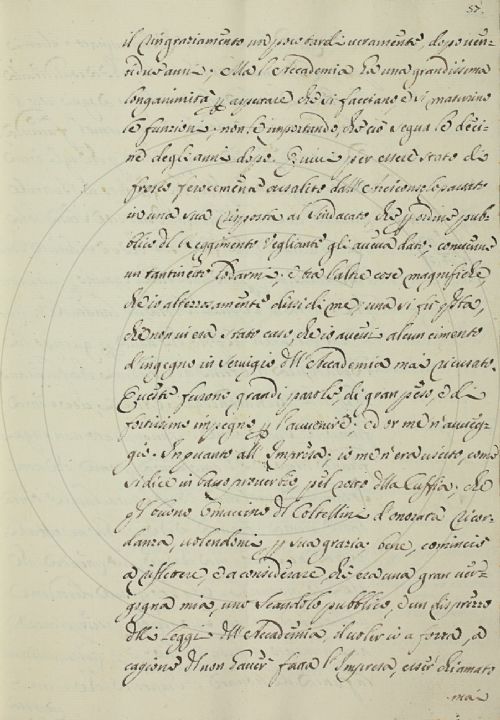 57.
il ringraziamento un poco tardi veramente, dopo ven-
tidue anni; Ma l'Accademia ha una grandissima
longanimità p aspettare che si facciano e si maturino
le funzioni, non le importando, che ciò segua le deci-
ne degli anni dopo. Quivi per essere stato di
fresco ferocemente assalito dall'Arciconsolo passato
in una sua risposta al Sindacato che p ordine pub-
blico del Reggimento Vegliante gli aveva dato; convenne
un tantinetto lodarmi, e tra l'altre cose magnifiche,
che io altezzosamente dissi di me, una si fu q.sta,
che non vi era stato caso, che io avessi alcun cimento
d'ingegno in servigio dell'Accademia mai ricusato.
Queste furono grandi parole, di gran peso, e di
fortissimo impegno p l'avvenire; ed or me n'avveg-
gio. In quanto all'Impresa, io me n'era uscito, come
si dice in basso proverbio, pel rotto della Cuffia; che
q.l buono Omaccino del Coltellini d'onorata Ricor-
danza, volendomi p sua grazia bene, cominciò
a riflettere, e a considerare, che era una gran ver-
gogna mia, uno Scandolo pubblico, e un disprezzo
delle Leggi dell'Accademia, il volere io a forza, a
cagione del non haver fatta l'Impresa, esser chiamato
mai